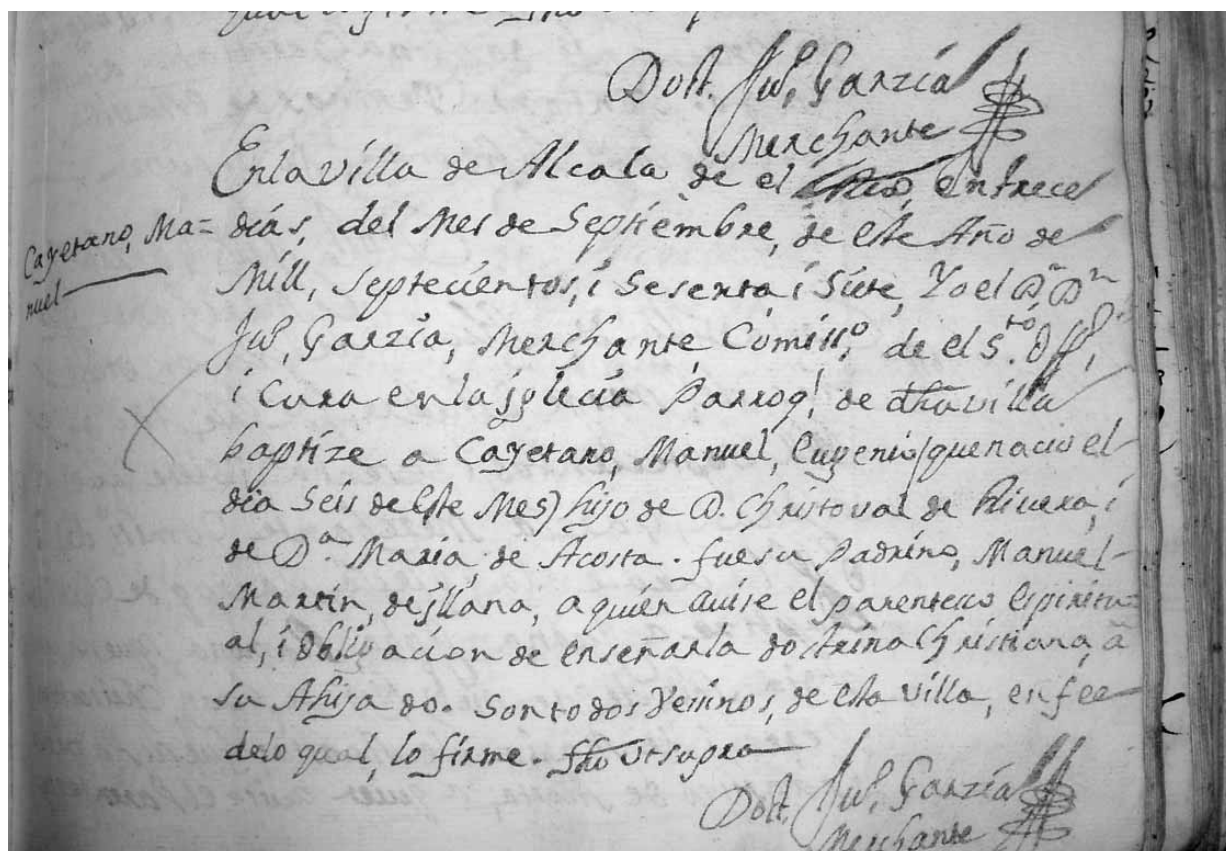 Doct. Juº. Garzía
Merchante
En la villa de Alcala de el Rio, en trece
Cayetano, Ma=
nuel
dias, del Mes de Septiembre, de este Año de
Mill, septecientos, i sesenta, i siete, Yo el D.r D.n
Juº, Garzía, Merchante, Comiss.º, de el S.to Off.º,
i Cura en la jglecia Parroq.l de dha villa
baptize a Cayetano, Manuel, Eugenio (que nacio el
dia Seis de este Mes) hijo de D. Christoval de Rivera, i
de D.a Maria, de Acosta. fue su Padrino, Manuel
Martin, de jllana, a quien avise el parentesco Espiritu=
al, i obligacion de enseñar la doctrina Christiana, a
su Ahijado. Son todos Vesinos, de esta villa, en fee
de lo qual, lo firme. fho Vt supra
Doct. Juº. Garzía
Merchante